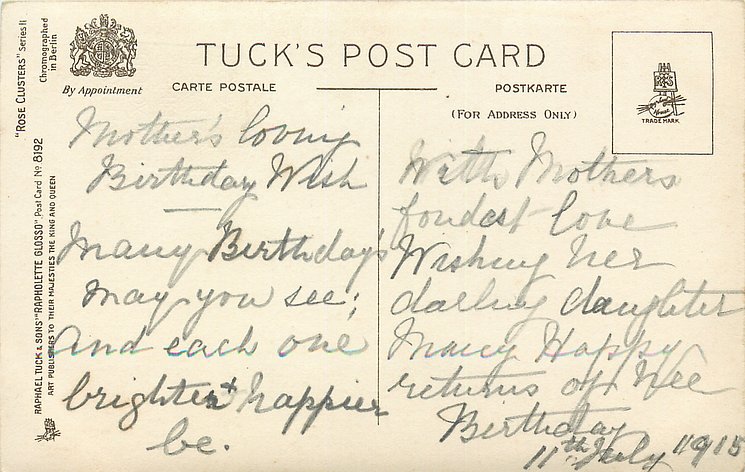 "ROSE CLUSTERS" Series II
Chromographed
in Berlin
By Appointment
TUCK'S POST CARD
CARTE POSTALE
POSTKARTE
(FOR ADDRESS ONLY)
TRADE MARK
RAPHAEL TUCK & SONS' "RAPHOLETTE GLOSSO" Post Card No 8192
ART PUBLISHERS TO THEIR MAJESTIES THE KING AND QUEEN
Mother's loving
Birthday Wish
Many Birthday's
May you see;
And each one
brighter + happier
be.
With Mothers
fondest love
Wishing her
darling daughter
Many Happy
returns of
Birthday
11th July 1915